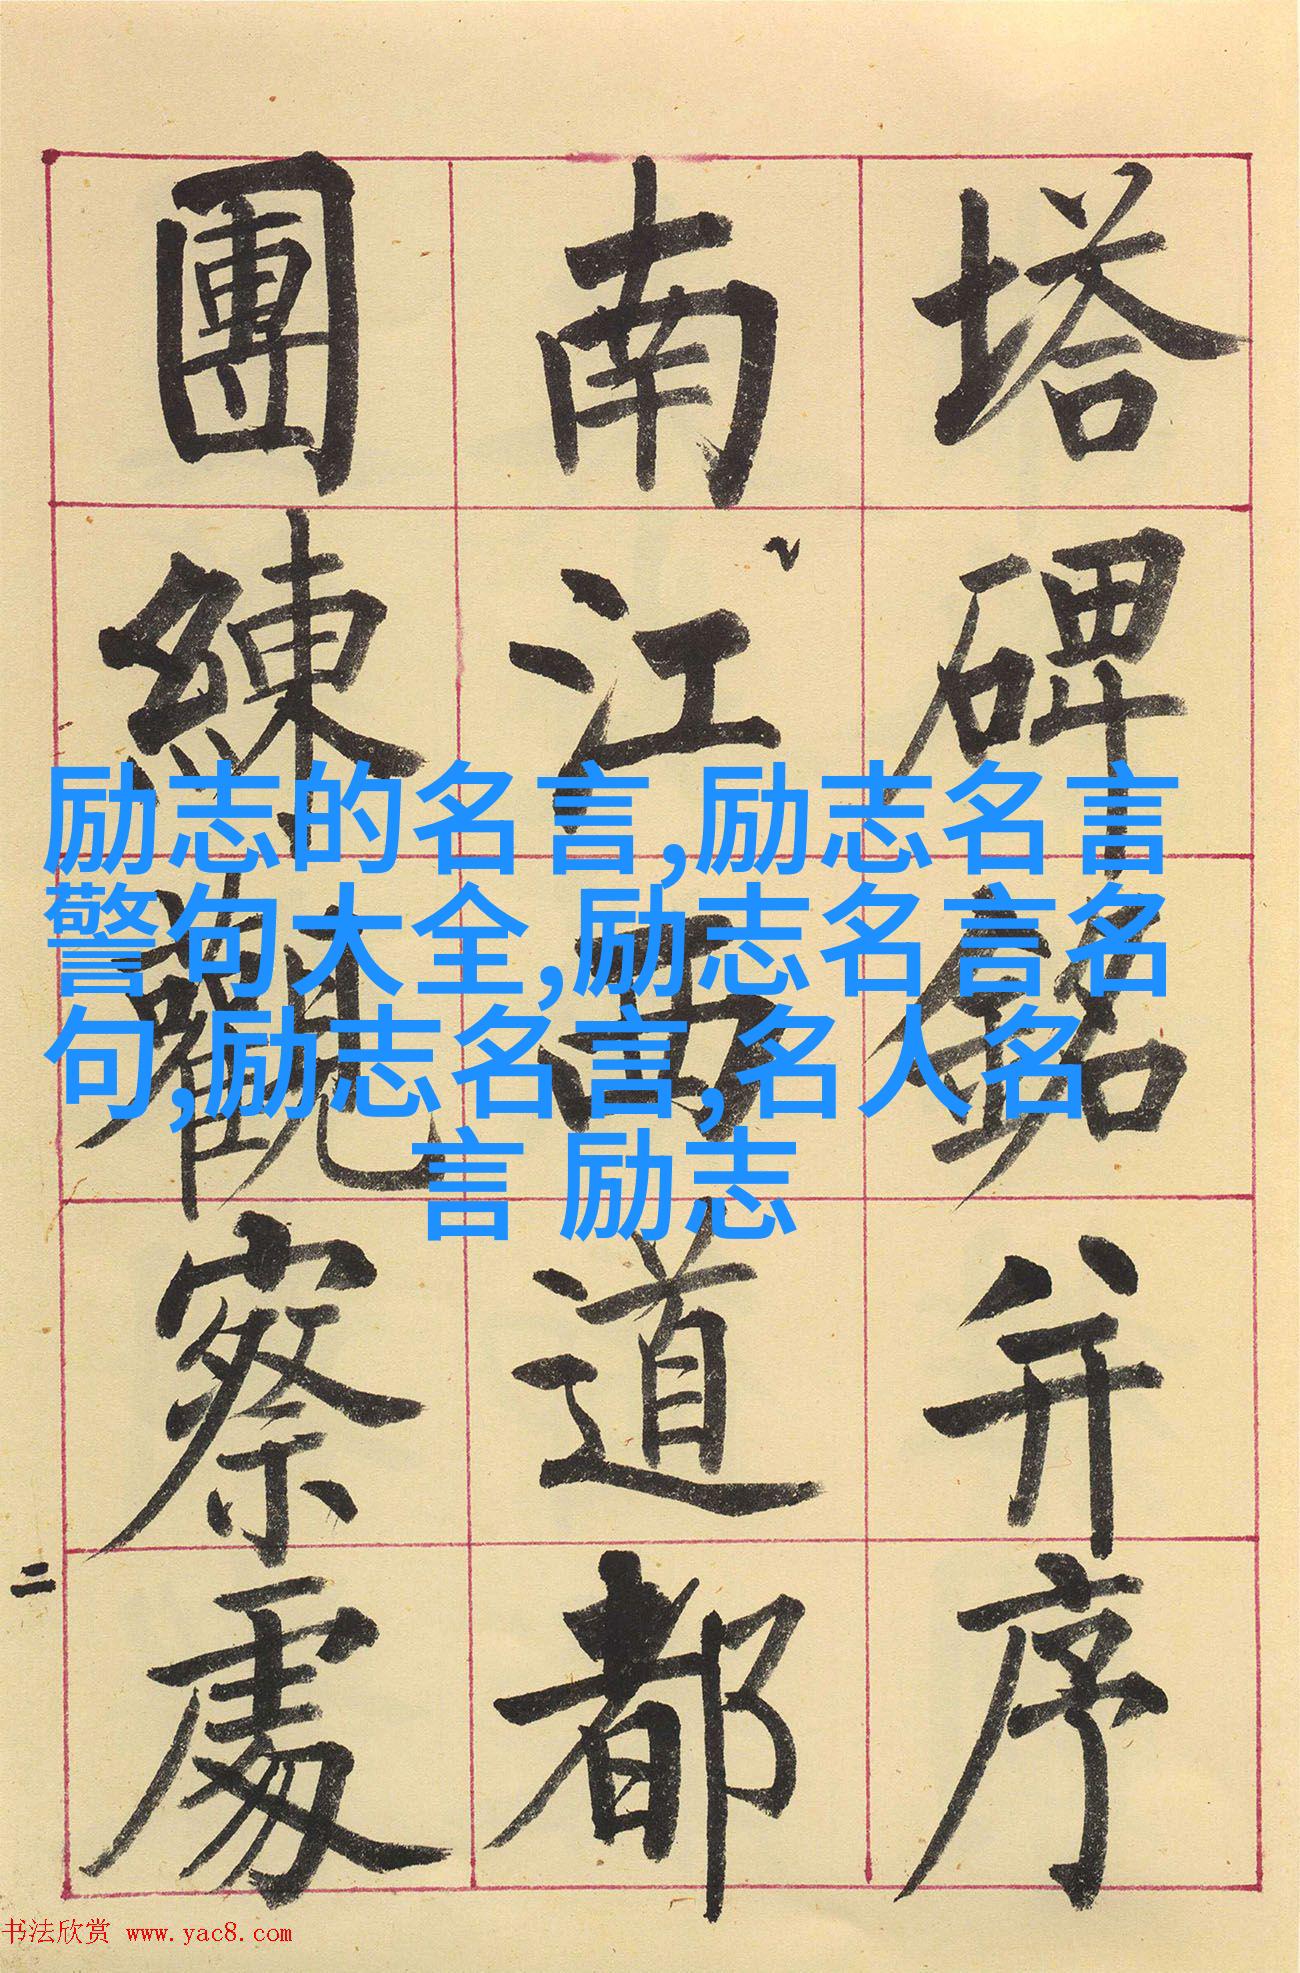 塔碑銘并序
南江西道都
團練觀察處
二
励志的名言,励志名言
警句大全,励志名言名
句,励志名言,名人名
言 励志
书法欣赏 www.yac8.com